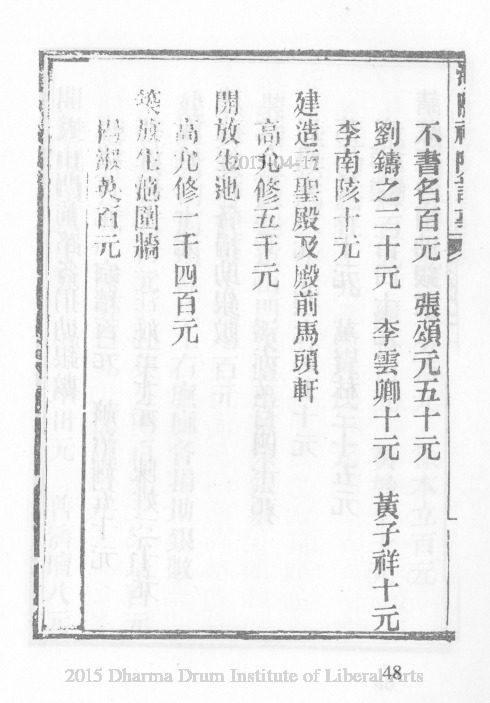 不書名百元 張頌元五十元
劉鑄之二十元 李雲卿十元 黃子祥十元
李南陔十元
建造三聖殿及殿前馬頭軒
高允修五千元
開放生池
高允修一千四百元
築放生池圍牆
淑英百元
48
2015-04-17
2015 Dharma Drum Institute of Liberal Arts